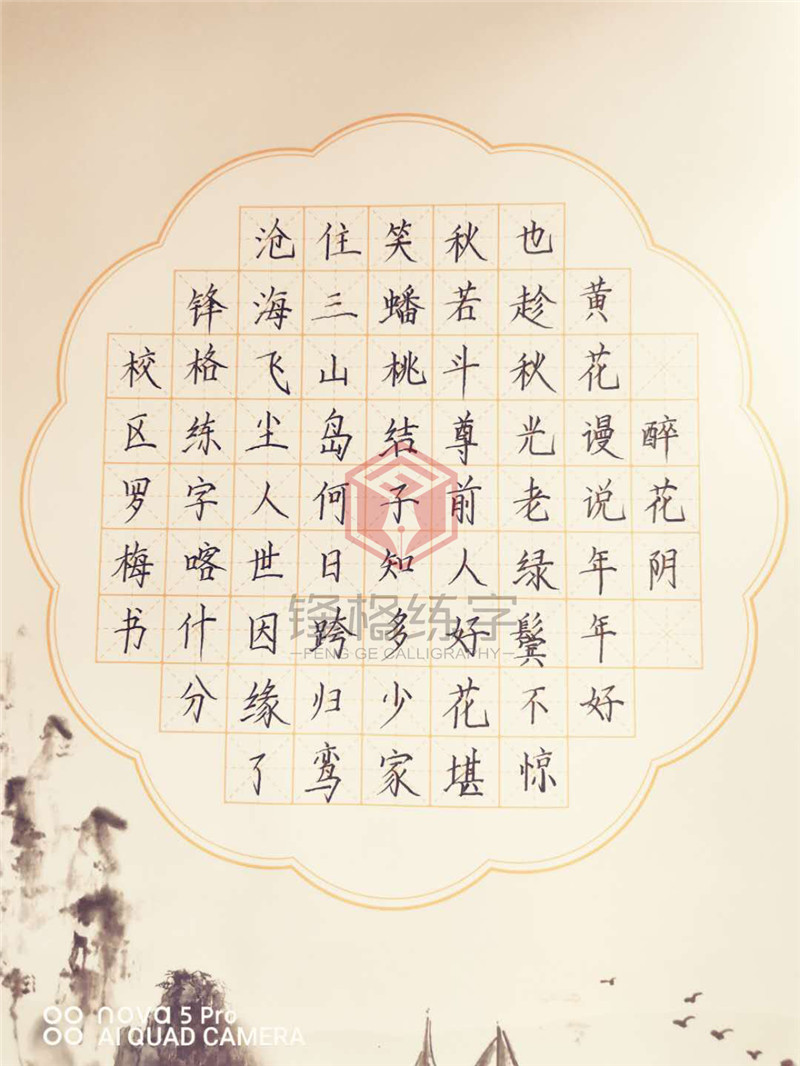 醉花阴
黄花谩说年年好
也趁秋光老绿鬓不惊
秋若斗尊前人好花堪
笑蟠桃结子知多少家
住三山岛何日跨归鸾
沧海飞尘人世因缘了
锋格练字喀什分
校区罗梅书
锋格练字
—FENG GE CALLIGRAPHY—
nova 5 Pro
AI QUAD CAMERA